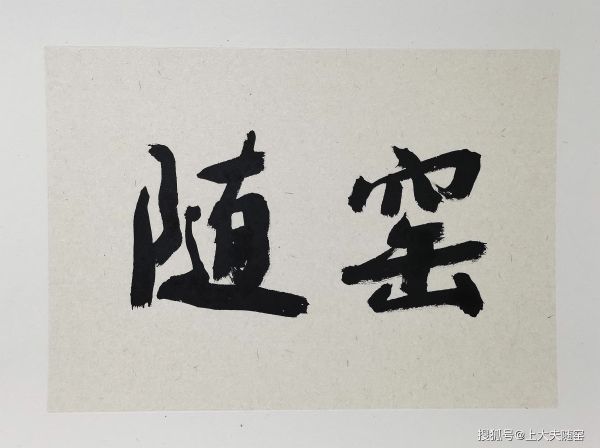 随窑
搜狐号@上大夫随窑